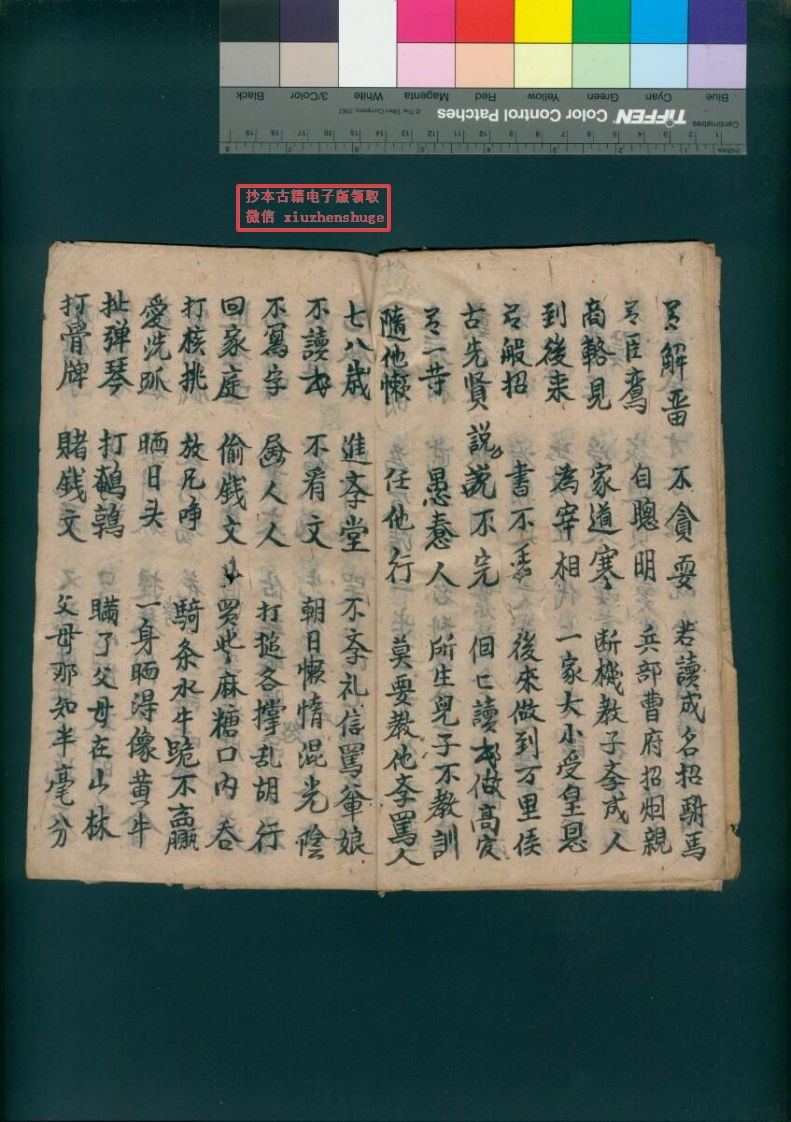 Blue
Cyan
Green
Yellow
Red
Magenta
White
3/Color
Black
Centimetres
TIFFEN Color Control Patches
© The Tiffen Company, 2007
Inches
抄本古籍电子版领取
微信 xiuzhenshuge
解晋 不貪耍 若讀成名招駙馬
臣鸾 自聰明 兵部曹府招烟親
商輅見 家道寒 断機教子孝成人
到後来 為宰相 一家大小受皇恩
般招 書不 後來做到万里侯
古先賢 説說不完 但 讀 做高官
一 愚蠢人 所生兒子不教訓
隨他懶 任他行 莫要教他孝罵人
七八歲 進孝堂 不孝礼信罵爺娘
不讀 不看文 朝日懶惰混光陰
不寫字 人人 打搥各撑乱胡行
回家庭 偷銭文 買些麻糖口内吞
打核挑 放 啼 騎条水牛跪不贏
愛洗 晒日头 一身晒得像黄牛
扯弹琴 打鵪鶉 瞞了父母在山林
打骨牌 賭銭文 父母那知半毫分